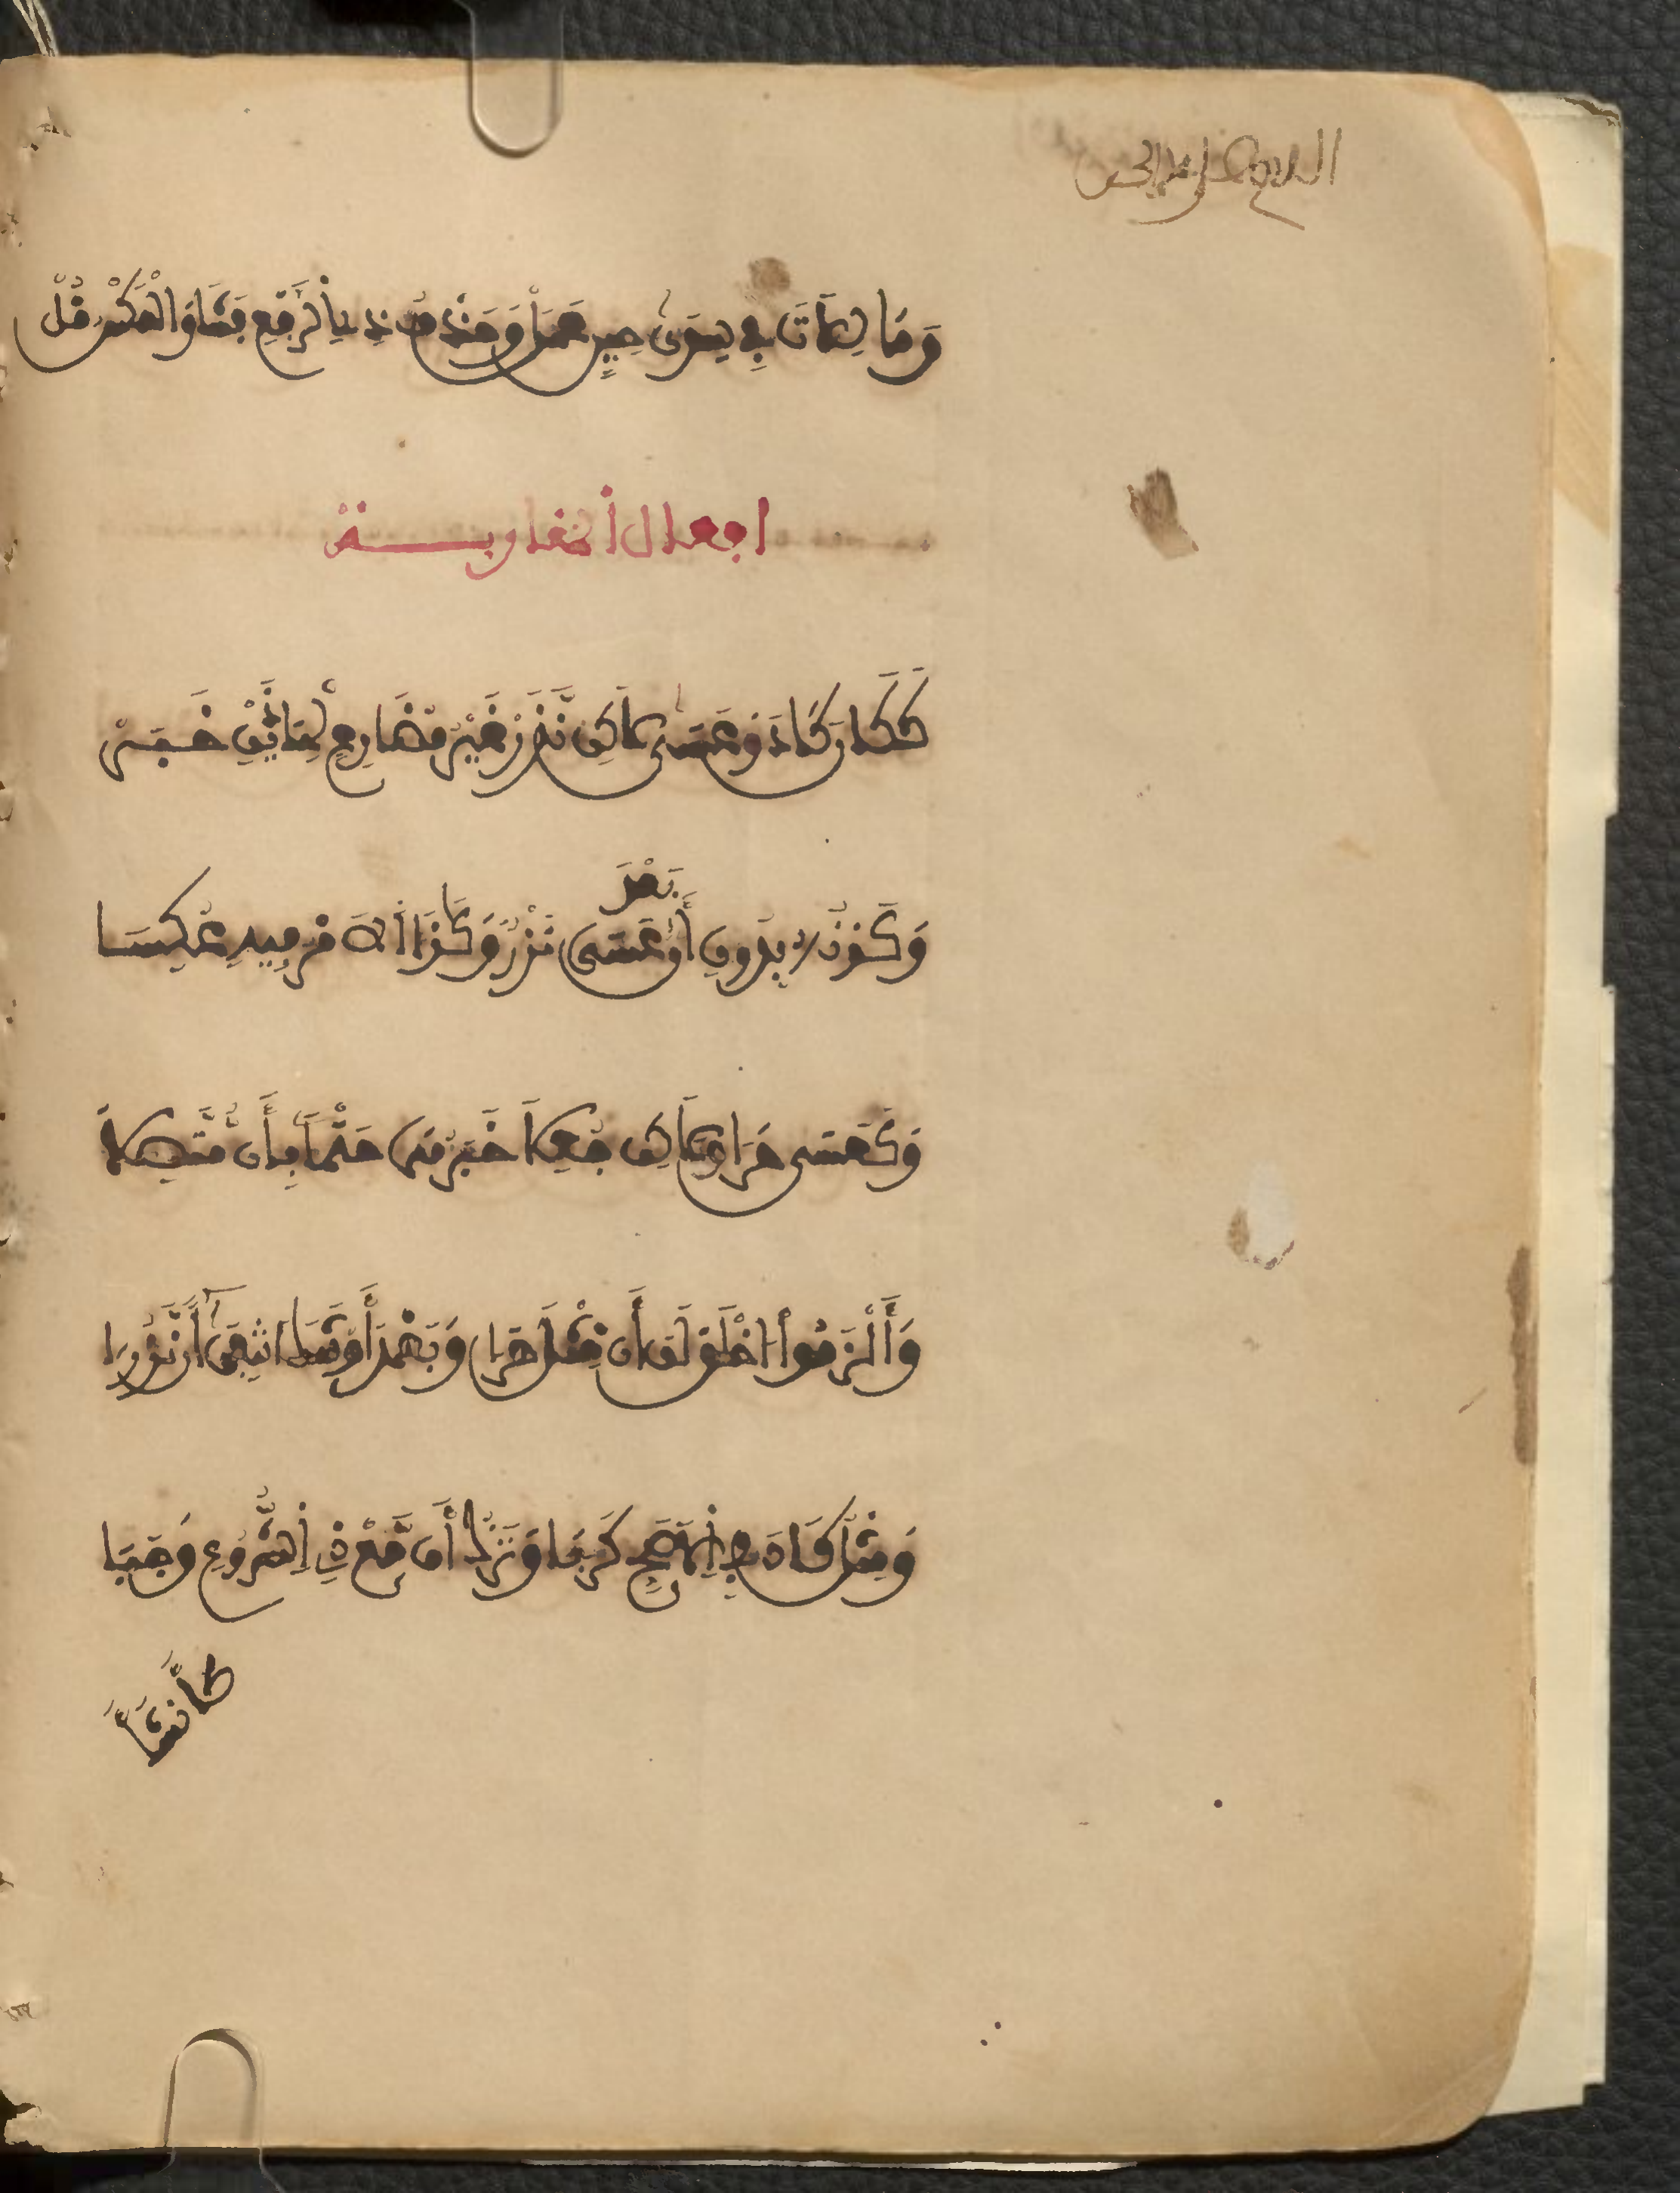 وَمَا لِلَاتَ فِي سِوَى حِينٍ عَمَلْ وَحَذْفُ ذِي الرَّفْعِ فَشَا وَالْعَكْسُ قُلّْ
افعال المقاربة
كَكَانَ كَادَ وَعَسَى لَكِنْ نَدَرْ غَيْرُ مُضَارِعٍ لِهَاذَيْنِ خَبَرْ
وَكَوْنُهُ بِدُونِ أَنْ بَعْدَ عَسَى نَزْرٌ وَكَادَ الأَمْرُ فِيهِ عُكِسَا
وَكَعَسَى حَرَى وَلَكِنْ جُعِلَا خَبَرُهَا حَتْمًا بِأَنْ مُتَّصِلَا
وَأَلْزَمُوا اخْلَوْلَقَ أَنْ مِثْلَ حَرَى وَبَعْدَ أَوْشَكَ انْتِفَا أَنْ نَزُرَا
وَمِثْلُ كَادَ فِي الأَصَحِّ كَرَبَا وَتَرْكُ أَنْ مَعْ ذِي الشُّرُوعِ وَجَبَا
كَأَنْشَأَ